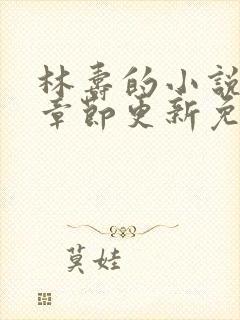 林壽的小說
章節更新免
莫娃